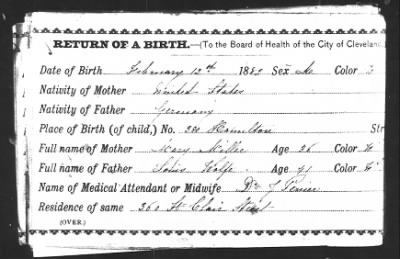 RETURN OF A BIRTH.—(To the Board of Health of the City of Cleveland.
Date of Birth February 12th 1882 Sex M. Color
Nativity of Mother United States
Nativity of Father Germany
Place of Birth (of child,) No. Hamilton Str
Full name of Mother Mary Miller Age 26 Color W
Full name of Father Louis Age 41 Color W
Name of Medical Attendant or Midwife Dr
Residence of same 360 St Clair West
(OVER.)